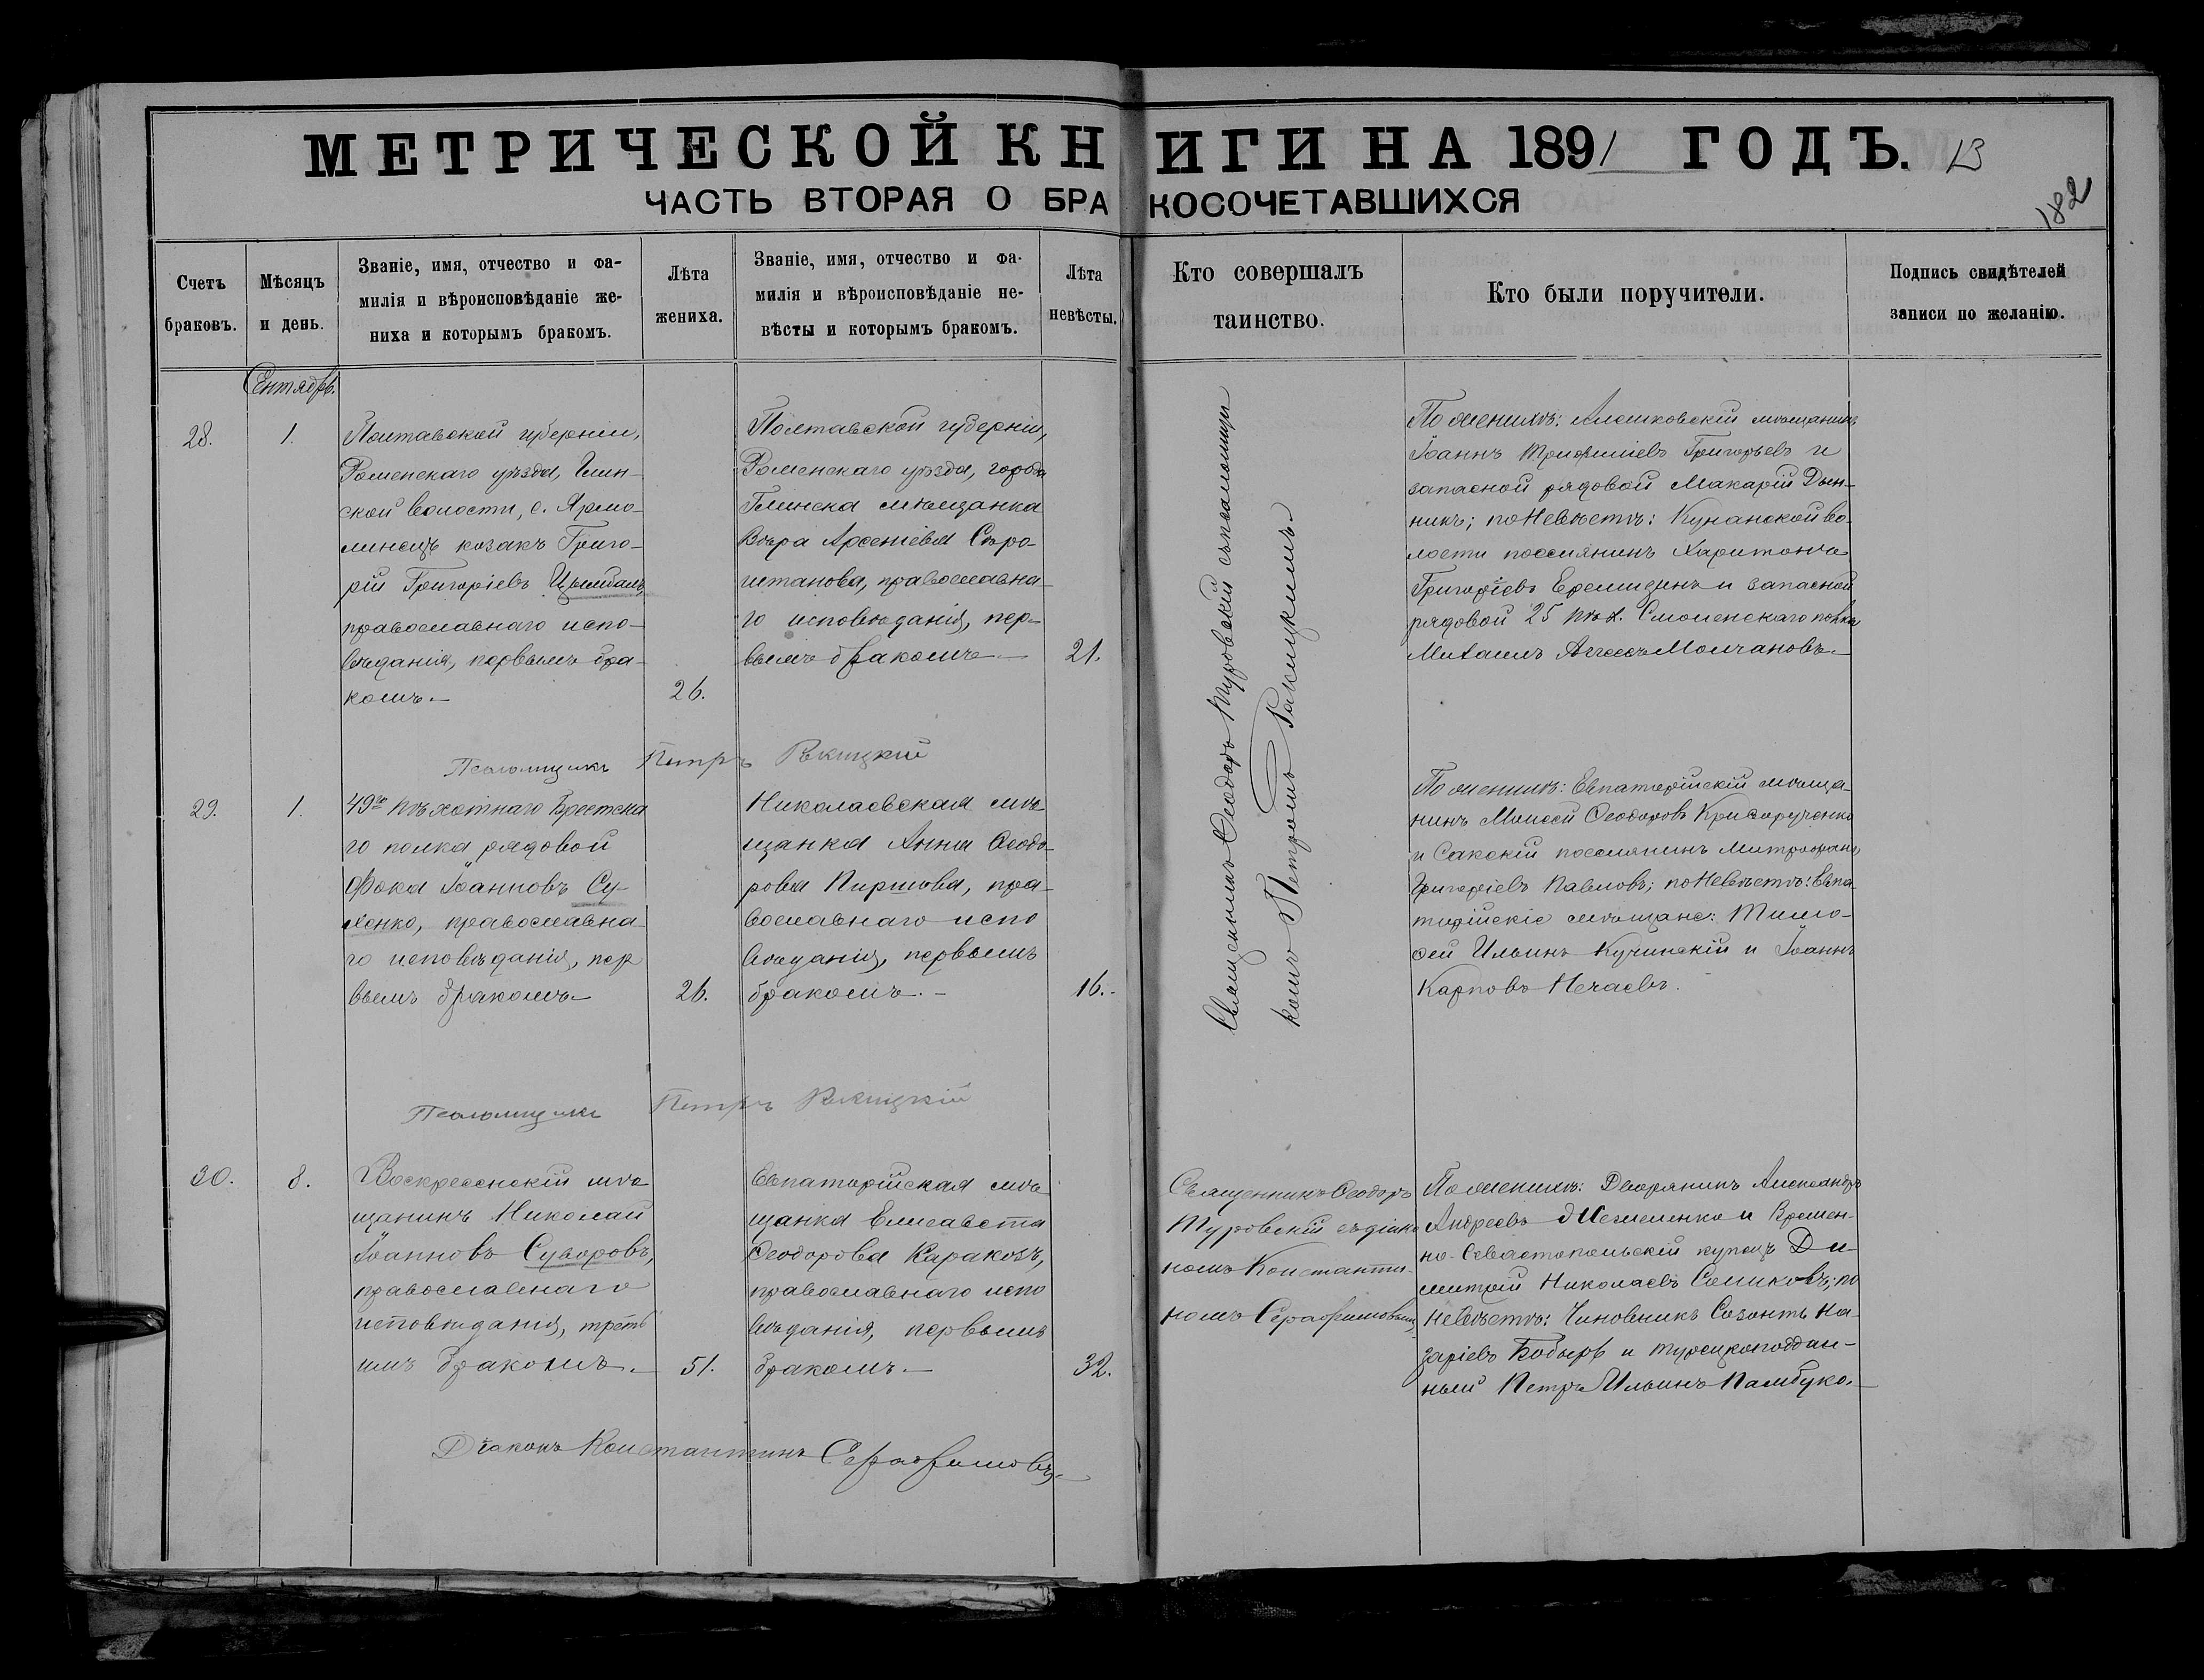 МЕТРИЧЕСКОЙ КНИГИ НА 1891 ГОДЪ. 13
182
ЧАСТЬ ВТОРАЯ О БРАКОСОЧЕТАВШИХСЯ
Счетъ
браковъ.
Мѣсяцъ
и день.
Званіе, имя, отчество и фа-
милія и вѣроисповѣданіе же-
ниха и которымъ бракомъ.
Лѣта
жениха.
Званіе, имя, отчество и фа-
милія и вѣроисповѣданіе не-
вѣсты и которымъ бракомъ.
Лѣта
невѣсты.
Кто совершалъ
таинство.
Кто были поручители.
Подпись свидѣтелей
записи по желанію.
Сентябрь.
28.
1.
Полтавской губерніи,
Роменскаго уѣзда, Глин-
ской волости, с. Ярмо-
линецъ козакъ Григо-
рій Григоріевъ Цымбалъ,
православнаго испо-
вѣданія, первымъ бра-
комъ.—
26.
Полтавской губерніи,
Роменскаго уѣзда, города
Глинска мѣщанка
Вѣра Арсеніева Сѣро-
штанова, православна-
го исповѣданія, пер-
вымъ бракомъ—
21.
Священникъ Ѳеодоръ Туровскій съ псаломщи
комъ Петромъ Ракицкимъ.
По женихѣ: Алешковскій мѣщанинъ
Іоаннъ Трифиліевъ Григорьевъ и
запасной рядовой Макарій Дын-
никъ; по Невѣстѣ: Кунанской во-
лости поселянинъ Харитонъ
Григоріевъ и запасной
рядовой 25 пѣх. Смоленскаго полка
Михаилъ Молчановъ.—
Псаломщикъ Петръ Ракицкій
29.
1.
49го пѣхотнаго Брестска
го полка рядовой
Фока Іоанновъ Су-
хенко, православна
го исповѣданія, пер
вымъ бракомъ—
26.
Николаевская мѣ
щанка Анна Ѳеодо-
рова Киршова, пра-
вославнаго испо
вѣданія, первымъ
бракомъ.—
16.-
По женихѣ: Евпаторійскій мѣща-
нинъ Моисей Ѳеодоровъ Криворученко
и Сакскій поселянинъ Митрофанъ
Григоріевъ Павловъ; по Невѣстѣ: Евпа-
торійскіе мѣщане: Тимо-
фей Ильинъ Кучинскій и Іоаннъ
Карповъ Нечаевъ.
Псаломщикъ Петръ Ракицкій
30.
8.
Воскресенскій мѣ
щанинъ Николай
Іоанновъ Суворовъ,
православнаго
исповѣданія, треть
имъ бракомъ.—
51.
Евпаторійская мѣ-
щанка Елисавета
Ѳеодорова Каракозъ,
православнаго испо
вѣданія, первымъ
бракомъ.—
32.
Священникъ Ѳеодоръ
Туровскій съ діако
номъ Константи-
номъ Серафимовымъ
По женихѣ: Дворянинъ Александръ
Андреевъ и Времен-
но-Севастопольскій купецъ Ди-
митрій Николаевъ по
Невѣстѣ: Чиновникъ Созонтъ На-
заріевъ Бобырь и турецкоподдан-
ный Петръ Ильинъ Памбуко.—
Діаконъ Константинъ Серафимовъ.—